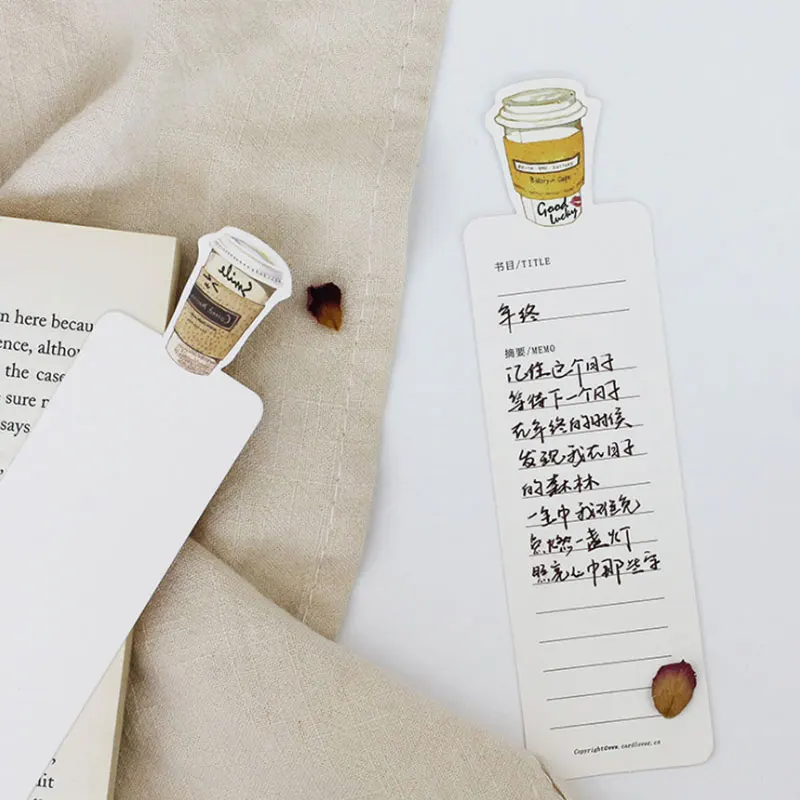 n here becau
ence, althou
the case
sure
says
Smile
Good
lucky
书目/TITLE
年终
摘要/MEMO
记住这个日子
等待下一个日子
在年终的时候
发现我在日子
的森林
一 中我难免
点燃一盏灯
照亮心中那些字
Copyright©www.cardlover.cn